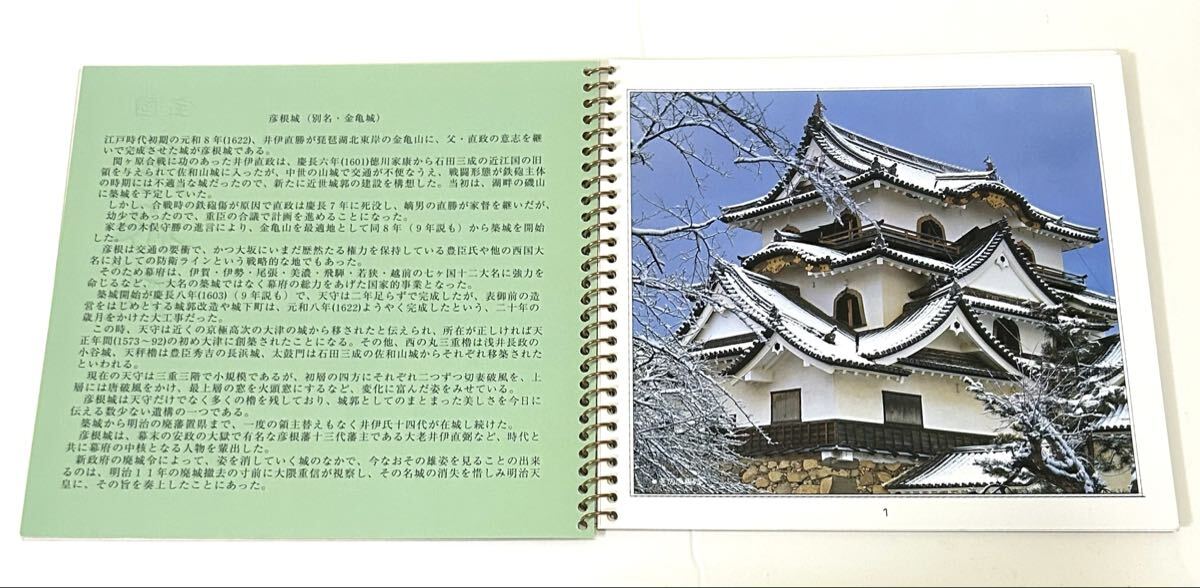 彦根城(別名・金亀城)
江戸時代初期の元和8年(1622)、井伊直勝が琵琶湖北東岸の金亀山に、父・直政の意志を継
いで完成させた城が彦根城である。
関ヶ原合戦に功のあった井伊直政は、慶長六年(1601)徳川家康から石田三成の近江国の旧
領を与えられて佐和山城に入ったが、中世の山城で交通が不便なうえ、戦闘形態が鉄砲主体
の時期には不適当な城だったので、新たに近世城郭の建設を構想した。当初は、湖畔の磯山
に築城を予定していた。
しかし、合戦時の鉄砲傷が原因で直政は慶長7年に死没し、嫡男の直勝が家督を継いだが、
幼少であったので、重臣の合議で計画を進めることになった。
家老の木俣守勝の進言により、金亀山を最適地として同8年(9年説も)から築城を開始
した。
彦根は交通の要衝で、かつ大坂にいまだ歴然たる権力を保持している豊臣氏や他の西国大
名に対しての防衛ラインという戦略的な地でもあった。
そのため幕府は、伊賀・伊勢・尾張・美濃・飛騨・若狭・越前の七ヶ国十二大名に強力を
命じるなど、一大名の築城ではなく幕府の総力をあげた国家的事業となった。
築城開始が慶長八年(1603)(9年説も)で、天守は二年足らずで完成したが、表御前の造
営をはじめとする城郭改造や城下町は、元和八年(1622)ようやく完成したという、二十年の
歳月をかけた大工事だった。
この時、天守は近くの京極高次の大津の城から移されたと伝えられ、所在が正しければ天
正年間(1573〜92)の初め大津に創築されたことになる。その他、西の丸三重櫓は浅井長政の
小谷城、天秤櫓は豊臣秀吉の長浜城、太鼓門は石田三成の佐和山城からそれぞれ移築された
といわれる。
現在の天守は三重三階で小規模であるが、初層の四方にそれぞれ二つずつ切妻破風を、上
層には唐破風をかけ、最上層の窓を火頭窓にするなど、変化に富んだ姿をみせている。
彦根城は天守だけでなく多くの櫓を残しており、城郭としてのまとまった美しさを今日に
伝える数少ない遺構の一つである。
築城から明治の廃藩置県まで、一度の領主替えもなく井伊氏十四代が在城し続けた。
彦根城は、幕末の安政の大獄で有名な彦根藩十三代藩主である大老井伊直弼など、時代と
共に幕府の中核となる人物を輩出した。
新政府の廃城令によって、姿を消していく城のなかで、今なおその雄姿を見ることの出来
るのは、明治11年の廃城撤去の寸前に大隈重信が視察し、その名城の消失を惜しみ明治天
皇に、その旨を奏上したことにあった。
1